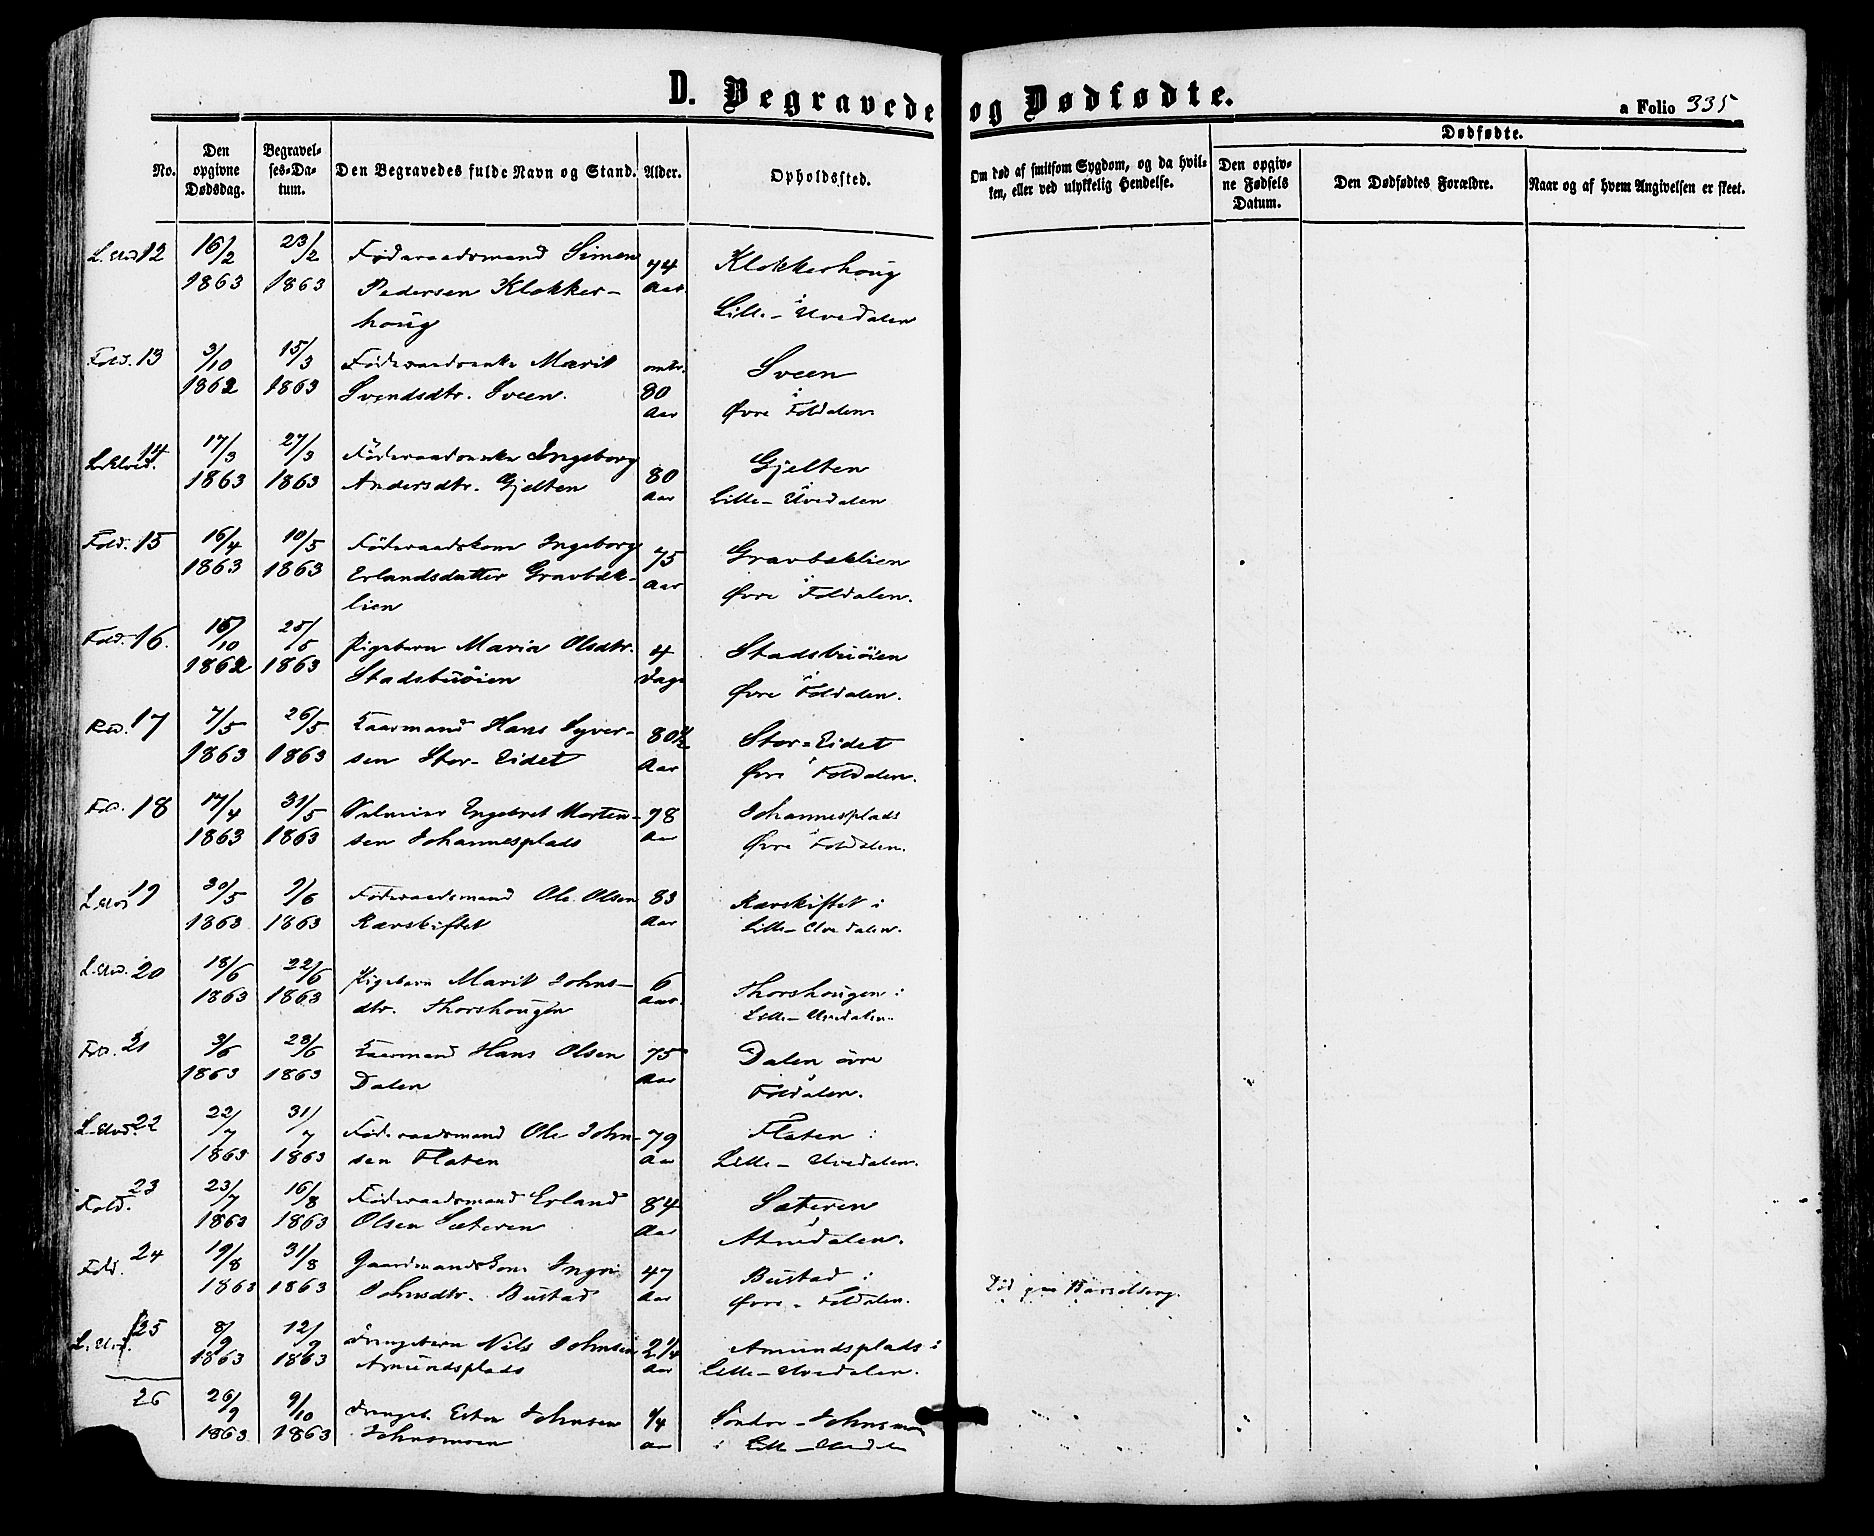 D. Begravede og Dødfødte.
a Folio 335
No.
Den opgivne Dødsdag.
Begravel-ses-Da-tum.
Den Begravedes fulde Navn og Stand.
Alder.
Opholdssted.
Om død af smitsom Sygdom, og da hvil-ken, eller ved ulykkelig Hendelse.
Dødfødte.
Den opgiv-ne Fødsels Datum.
Den Dødfødtes Forældre.
Naar og af hvem Angivelsen er skeet.
12 16/2 23/2 Føderaadsmand Simen 74 Klokkerhoug
1863 1863 Pedersen Klokker- Aar i
houg Lille-Elvedalen
Fold. 13 3/10 15/3 Føderaadsenke Marit omtr. Sveen
1862 1863 Svendsdtr. Sveen. 80 i
Aar Øvre Foldalen.
14 17/3 27/3 Føderaadsenke Ingeborg Gjelten
1863 1863 Andersdtr. Gjelten 80 i
Aar Lille-Elvedalen
Fold. 15 16/4 10/5 Føderaadskone Ingeborg 75 Gravbæklien
1863 1863 Erlandsdatter Gravbæk- Aar i
lien Øvre Foldalen.
Fold. 16. 10 25/5 Pigebarn Maria Olsdtr. 4 Stadsbuöien
1862 1863 Stadsbuöien Dage i
Øvre Foldalen.
17 7/5 26/5 Kaarmand Hans Syver- 80½ Stor-Eidet
1863 1863 sen Stor-Eidet Aar i
Øvre Foldalen.
18 17/4 31/5 Engebret Morten- 78 Johannesplads
1863 1863 sen Johannesplads Aar i
Øvre Foldalen.
19 30/5 9/6 Føderaadsmand Ole Olsen 83 Rævskiftet i
1863 1863 Rævskiftet Aar Lille-Elvedalen.
20 18/6 22/6 Pigebarn Marit Johns- 6 Thorshougen i
1863 1863 dtr. Thorshougen Aar. Lille-Elvedalen.
21 3/6 28/6 Kaarmand Hans Olsen 75 Dalen övre
1863 1863 Dalen Aar Foldalen.
22 22/7 31/7 Føderaadsmand Ole John- 79 Flaten i
1863 1863 sen Flaten Aar Lille-Elvedalen.
Fold. 23 23/7 16/8 Føderaadsmand Erland 84 Sæteren
1863 1863 Olsen Sæteren Aar i
Atnedalen.
Fold. 24 19/8 31/8 Gaardmandskone Ingri 47 Bustad i
1863 1863 Johnsdtr. Bustad Aar Øvre-Foldalen.
Död paa Barselseng.
25 8/9 12/9 Drengebarn Nils Johnsen 2¼ Amundsplads i
1863 1863 Amundsplads Aar Lille-Elvedalen.
26 26/9 9/10 Drengeb. Johnsen ¼ Søndre-Johnsmoen
1863 1863 Johnsmoen Aar i Lille-Elvedalen